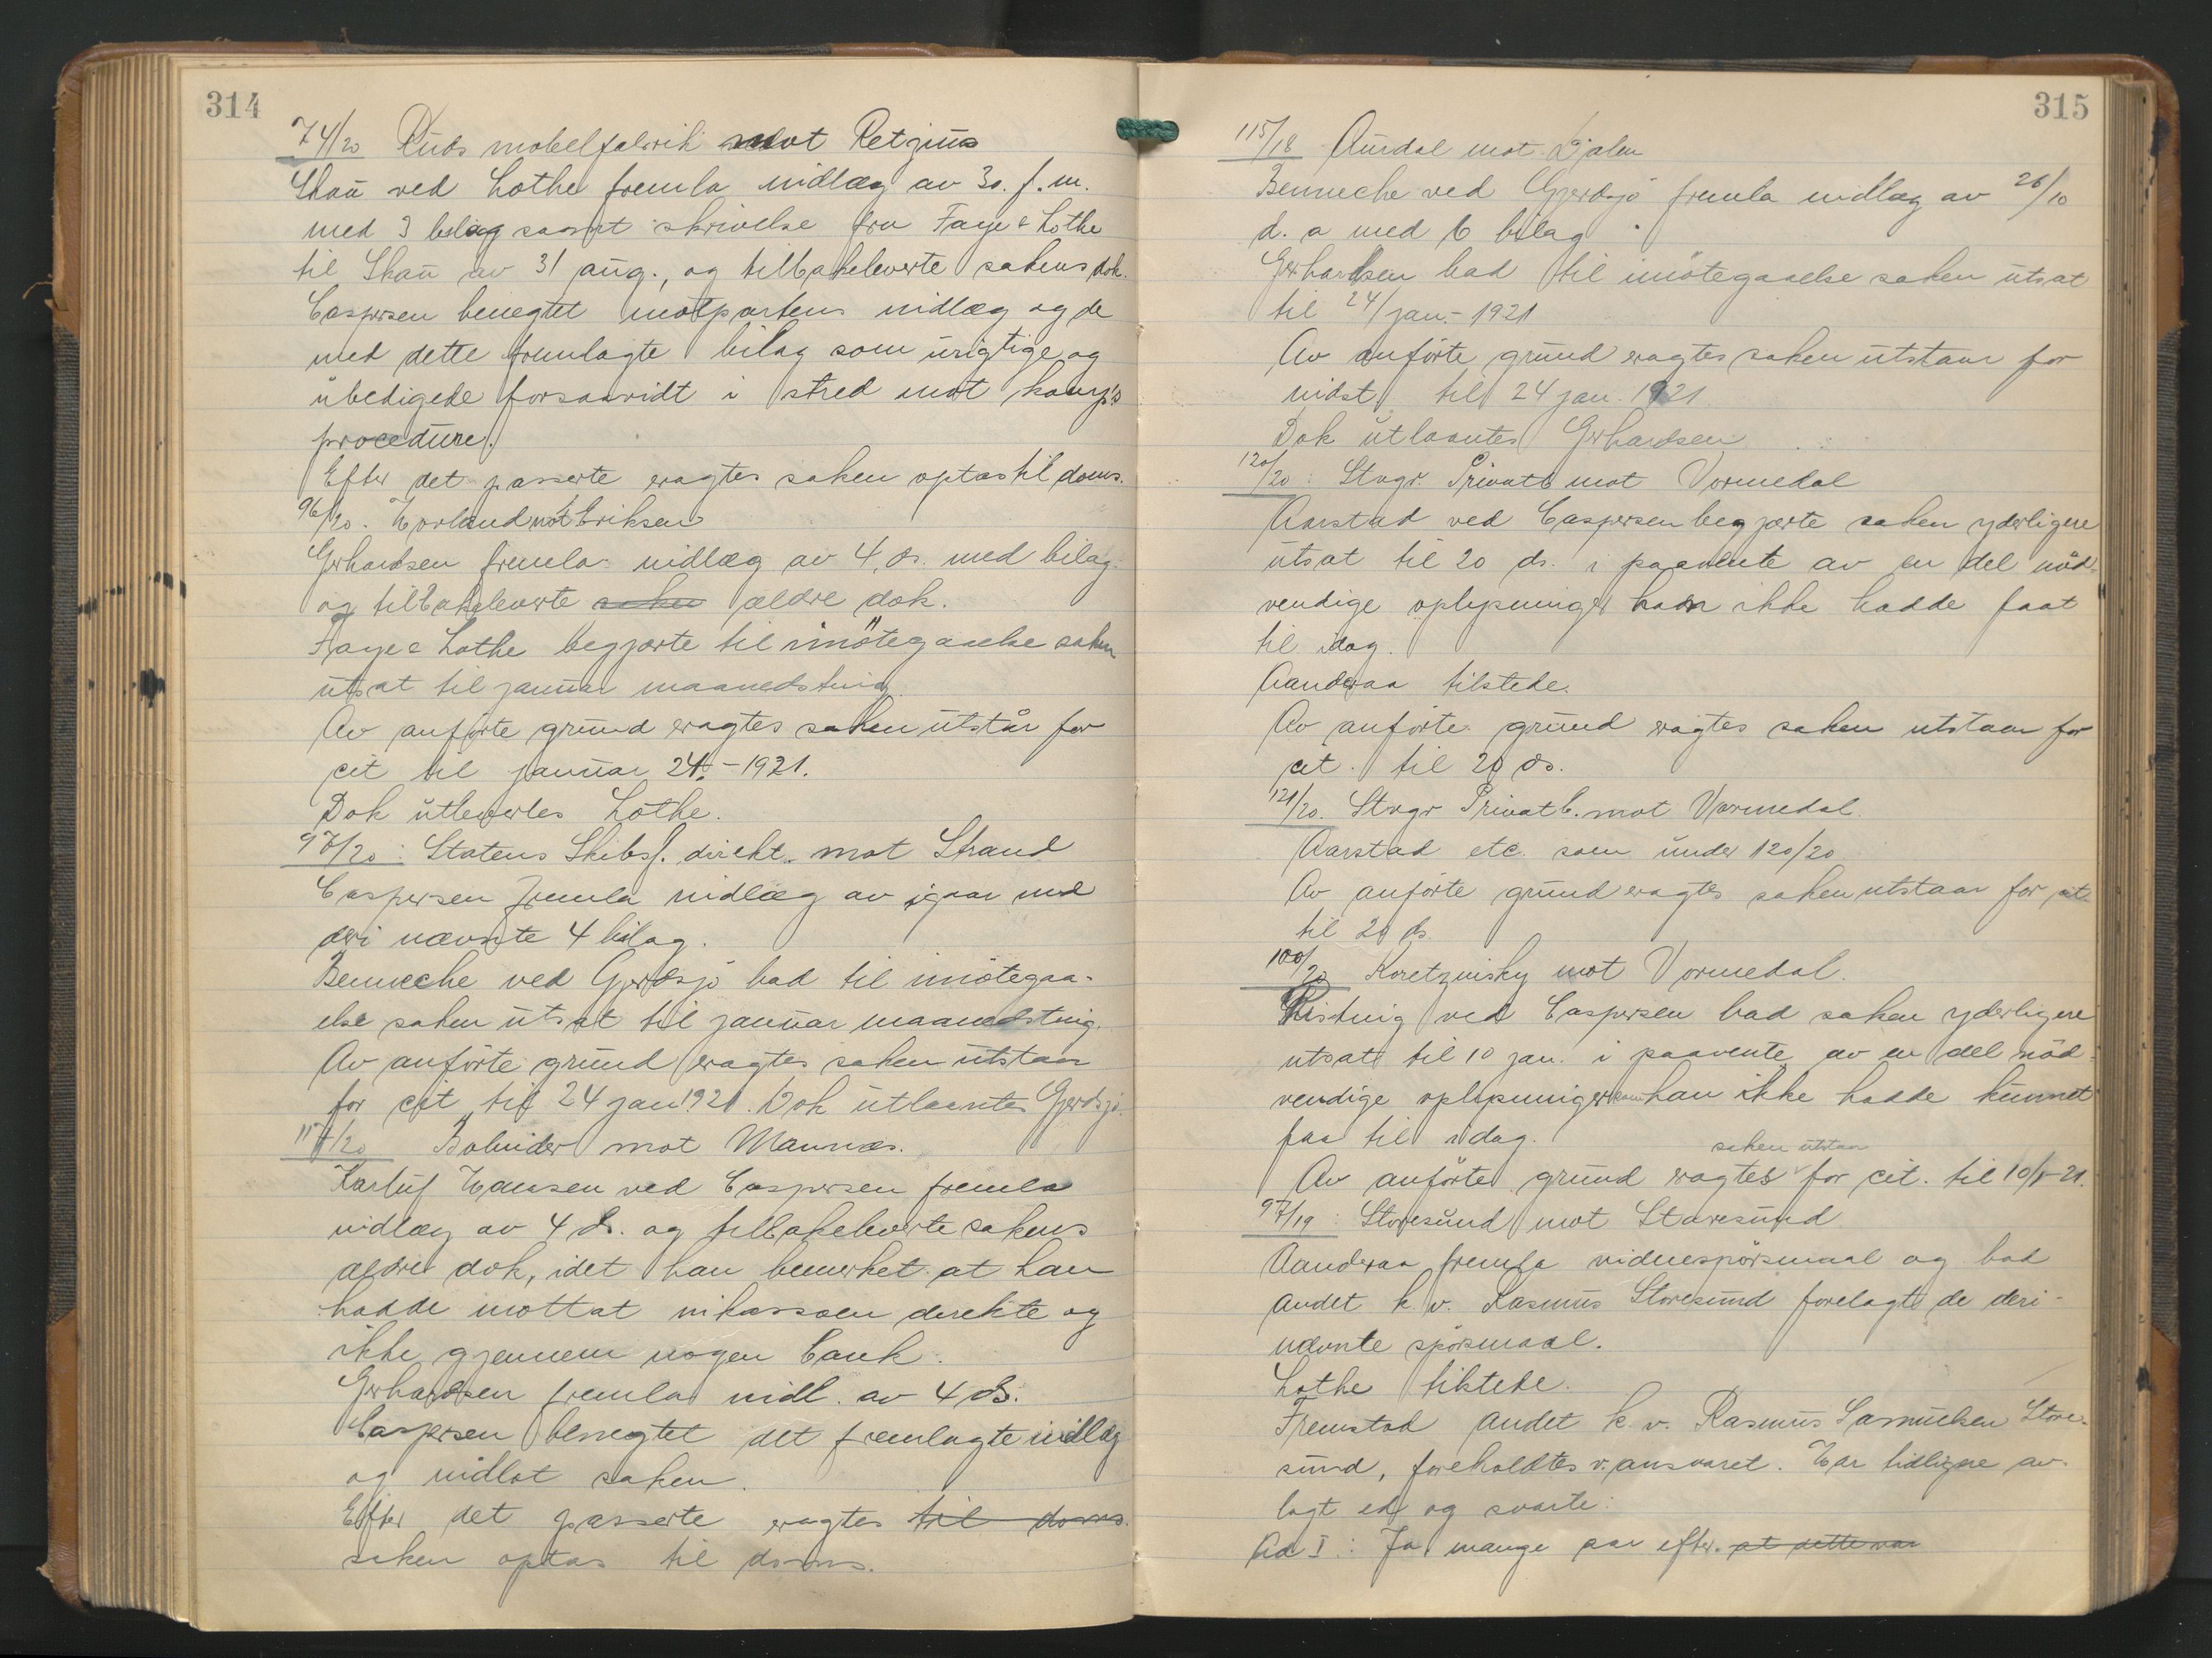 314
74/20 Ruds mobelfabrik mot Retzius
Skau ved Lothe fremla indlæg av 30. f.m.
med 3 bilag samt skrivelse fra Faye & Lothe
til Skau av 31 aug., og tilbakeleverte sakens dok.
Caspersen benegtet motpartens indlæg og de
med dette fremlagte bilag som urigtige og
ubedigede forsaavidt i stred mot
procedure.
Efter det passerte eragtes saken optas til doms.
96/20. mot Eriksen
Gerhardsen fremla indlæg av 4. ds. med bilag
og tilbakeleverte saken ældre dok.
Faye & Lothe begjærte til imötegaaelse saken
utsat til januar maanedsting.
Av anförte grund eragtes saken utstår for
cit til januar 24. - 1921.
Dok utleveres Lothe.
97/20: Statens Skibsf. direkt. mot Strand
Caspersen fremla indlæg av igaar med
deri nævnte 4 bilag.
Benneche ved Gjerdsjö bad til imötegaa-
else saken utsat til januar maanedsting.
Av anförte grund eragtes saken utstaar
for cit til 24 jan 1921. Dok utlaantes Gjerdsjö.
117/20 Bolinder mot Mannæs.
Karluf Hanssen ved Caspersen fremla
indlæg av 4 ds. og tilbakeleverte sakens
ældre dok, idet han bemerket at han
hadde mottat inkassoen direkte og
ikke gjennem nogen bank.
Gerhardsen fremla indl. av 4 ds.
Caspersen benegtet det fremlagte indlæg
og indlot saken.
Efter det passerte eragtes til doms.
saken optas til doms.
315
115/18 Aurdal mot Djalen
Benneche ved Gjerdsjö fremla indlæg av 26/10
d. a med 6 bilag
Gerhardsen bad til imötegaaelse saken utsat
til 24/jan. - 1921
Av anförte grund eragtes saken utstaar for
indst. til 24 jan. 1921.
Dok utlaantes Gerhardsen
120/20: Stvgr. Privatb mot Vormedal
Aarstad ved Caspersen begjærte saken yderligere
utsat til 20 ds. i paavente av en del nöd-
vendige oplysninger han ikke hadde faat
til idag.
Aanderaa tilstede.
Av anförte grund eragtes saken utstaar for
cit. til 20 ds.
121/20. Stvgr Privatb. mot Vormedal.
Aarstad etc. som under 120/20
Av anförte grund eragtes saken utstaar for cit
til 20 ds.
100/20 Koretzinsky mot Vormedal.
Ristning ved Caspersen bad saken yderligere
utsat til 10 jan. i paavente av en del nöd-
vendige oplysninger som han ikke hadde kunnet
faa til idag.
saken utstaar
Av anförte grund eragtes for cit. til 10/1-21.
97/19: Storesund mot Storesund
Aanderaa fremla vidnespörsmaal og bad
andet k. v. Rasmus Storesund forelagt de deri-
nævnte spörsmaal.
Lothe tilstede.
Fremstod andet k. v. Rasmus Samuelsen Store-
sund, foreholdtes v. ansvaret. Har tidligere av-
lagt ed og svarte:
Ad I: Ja mange aar efter. at dette var